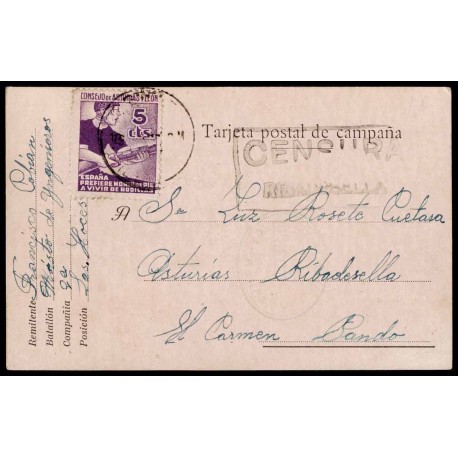 CONSEJO DE ASTURIAS Y LEON
5
cts.
ESPAÑA
PREFIERE MORIR DE PIE
A VIVIR DE RODILLAS
Tarjeta postal de campaña
CENSURA
RIBADESELLA
A Sta Luz Rosete Cuetasa
Asturias Ribadesella
El Carmen Pando
Remitente Francisco
Batallón Mixto de Yngenieros
Compañía 2ª
Posición Las Hoces